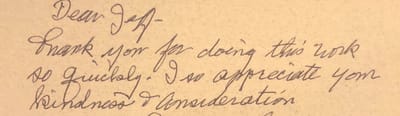 Dear Jeff-
Thank you for doing this work
so quickly. I so appreciate your
kindness & consideration